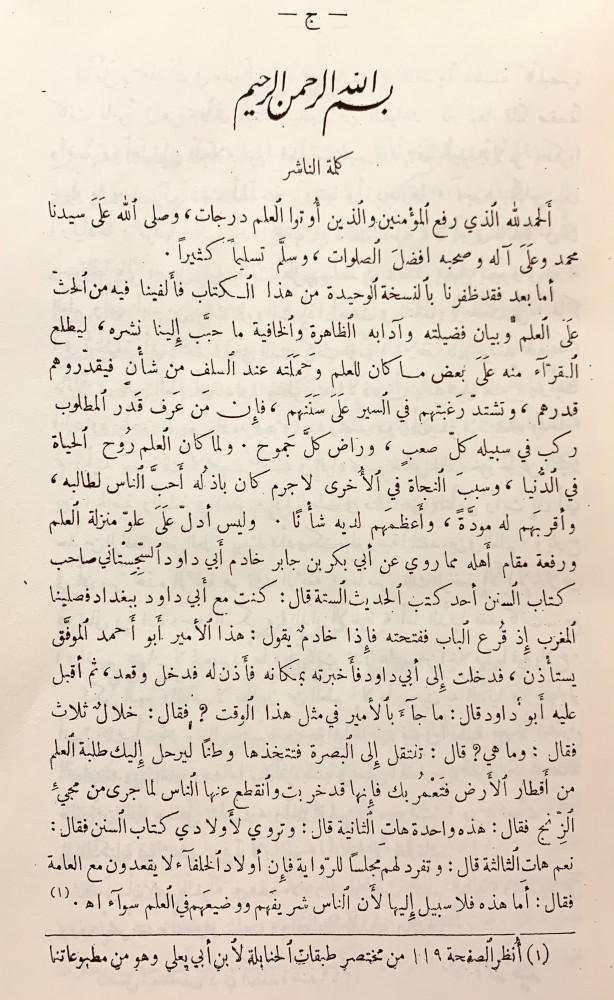 — ج —
بسم الله الرحمن الرحيم
كلمة الناشر
ألحمد لله الذي رفع المؤمنين والذين أُوتوا العلم درجات، وصلى الله عَلَى سيدنا
محمد وعَلَى آله وصحبه افضلَ الصلوات، وسلَّم تسليماً كثيراً.
أما بعد فقد ظفرنا بالنسخة الوحيدة من هذا الكتاب فألفينا فيه من الحثّ
عَلَى العلم وبيان فضيلته وآدابه الظاهرة والخافية ما حبَّب إلينا نشره، ليطلع
القرآء منه عَلَى بعض ما كان للعلم وحَملَته عند السلف من شأْنٍ فيقدّروهم
قدرهم، وتشتدّ رَغبتهم في السير عَلَى سَنَنهم، فإِن مَن عَرف قَدر المطلوب
ركب في سبيله كلّ صعبٍ، وراض كلَّ جَموح. ولما كان العلم رُوح الحياة
في الدُّنيا، وسببَ النجاة في الأُخرى لاجرم كان باذلُه أَحبَّ الناس لطالبه،
وأقربَهم له مودَّةً، وأَعظمَهم لديه شأْنًا. وليس أدلّ عَلَى علوّ منزلة العلم
ورفعة مقام أهله مما روي عن أبي بكر بن جابر خادم أبي داود السِّجِسْتاني صاحب
كتاب السنن أحد كتب الحديث الستة قال: كنت مع أبي داود ببغداد فصلينا
المغرب إِذ قُرع الباب ففتحته فإِذا خادمٌ يقول: هذا الأمير أبو أحمد الموفَّق
يستأذن، فدخلت إِلى أبي داود فأخبرته بمكانه فأذن له فدخل وقعد، ثم أقبل
عليه أبو داود قال: ما جآءَ بالأمير في مثل هذا الوقت؟ فقال: خلالٌ ثلاث
فقال: وما هي؟ قال: تنتقل إِلى البصرة فتتخذها وطنًا ليرحل إِليك طلبة العلم
من أقطار الأرض فتَعْمُر بك فإِنها قد خربت وانقطع عنها الناس لما جرى من مجيءِ
الزِّنج فقال: هذه واحدة هاتِ الثانية قال: وتروي لأولادي كتاب السنن فقال:
نعم هات الثالثة قال: وتفرد لهم مجلسًا للرّواية فإِن أولاد الخلفآء لا يقعدون مع العامة
فقال: أما هذه فلا سبيل إليها لأن الناس شريفَهم ووضيعَهم في العلم سوآء اه.(١)
(١) أنظر الصفحة ١١٩ من مختصر طبقات الحنابلة لأبن أبي يعلي وهو من مطبوعاتنا